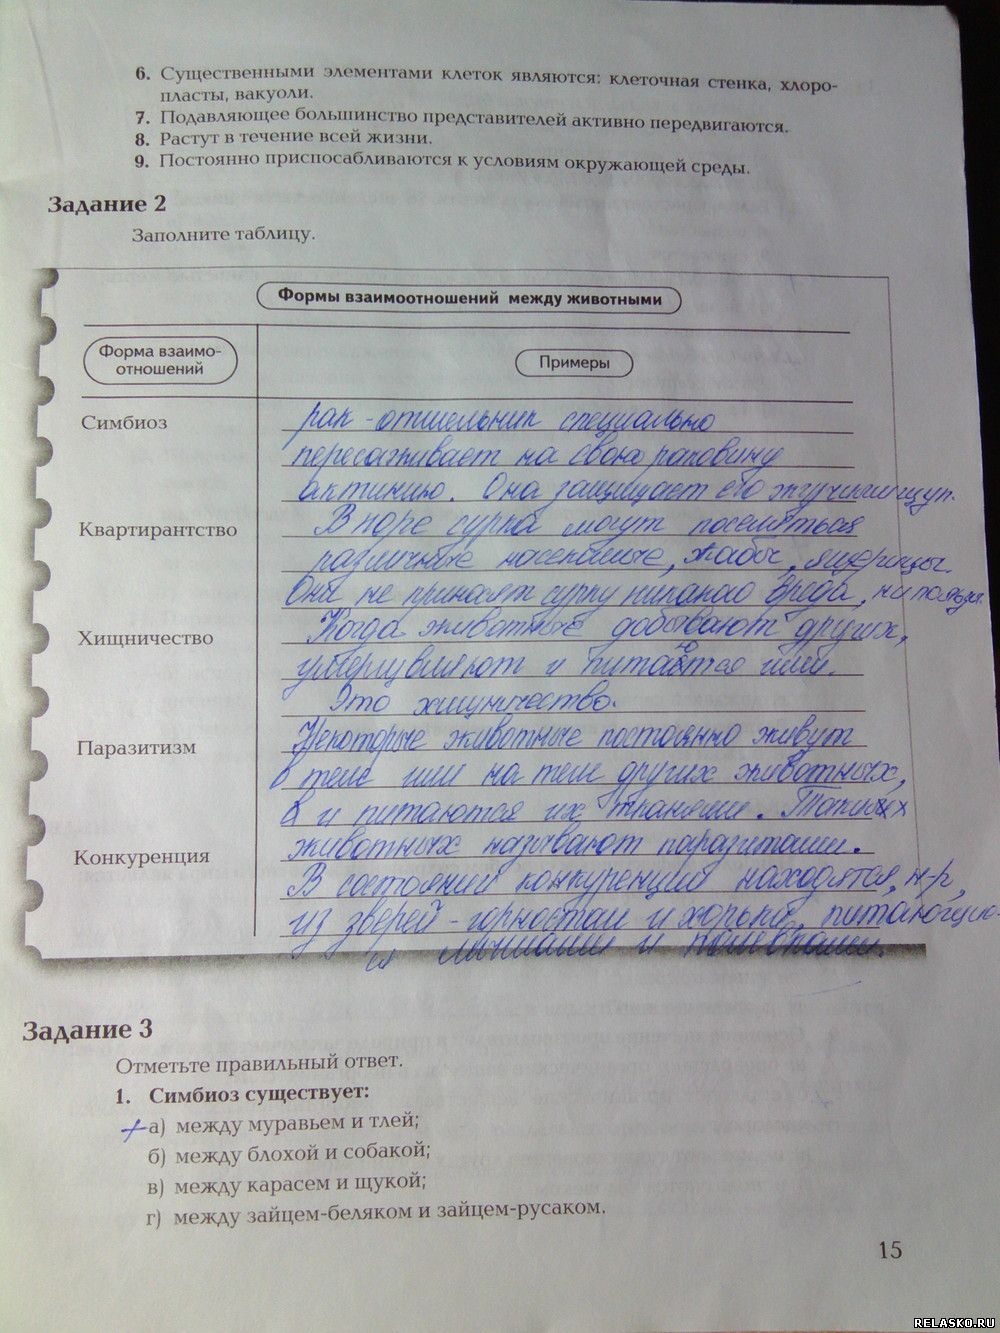 6. Существенными элементами клеток являются: клеточная стенка, хлоро-
пласты, вакуоли.
7. Подавляющее большинство представителей активно передвигаются.
8. Растут в течение всей жизни.
9. Постоянно приспосабливаются к условиям окружающей среды.
Задание 2
Заполните таблицу.
Формы взаимоотношений между животными
Форма взаимо-
отношений
Примеры
Симбиоз
рак-отшельник специально
пересаживает на свою раковину
актинию. Она защищает его жгучими щуп.
Квартирантство
В норе сурка могут поселиться
различные насекомые, жабы, ящерицы.
Они не приносят сурку никакого вреда, ни пользы.
Хищничество
Когда животные добывают других,
умерщвляют и питаются ими.
Это хищничество.
Паразитизм
Некоторые животные постоянно живут
в теле или на теле других животных,
и питаются их тканями. Таких
животных называют паразитами.
Конкуренция
В состоянии конкуренции находятся, н-р,
из зверей - горностаи и хорьки, питающие
ся мышами и полёвками.
Задание 3
Отметьте правильный ответ.
1. Симбиоз существует:
+а) между муравьем и тлей;
б) между блохой и собакой;
в) между карасем и щукой;
г) между зайцем-беляком и зайцем-русаком.
15
RELASKO.RU